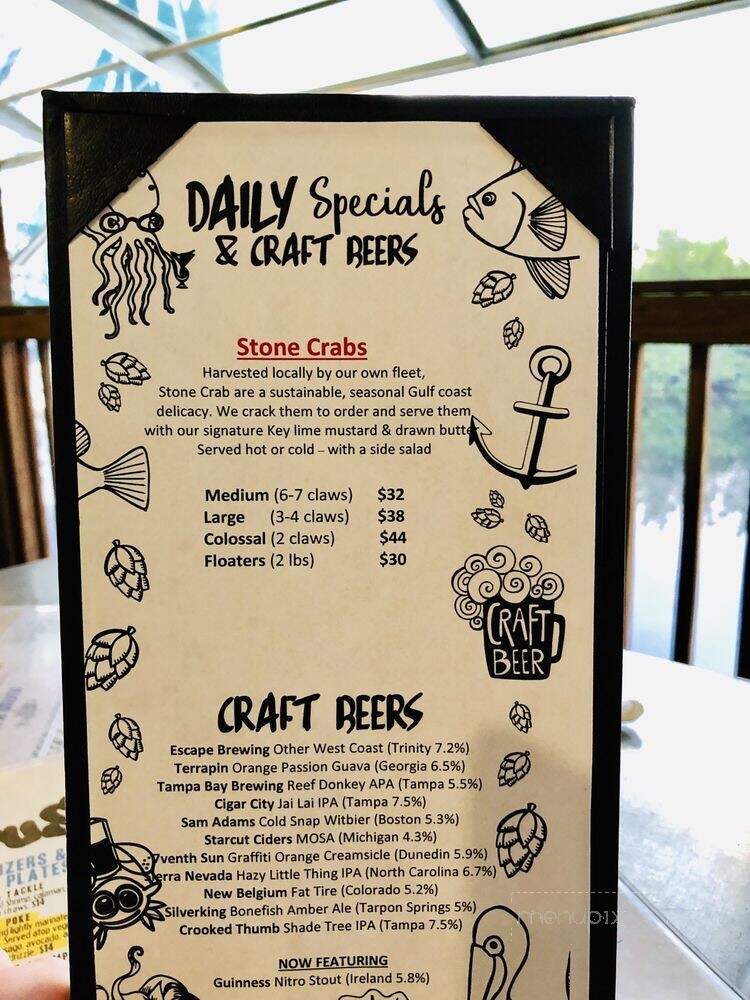 DAILY Specials
& CRAFT BEERS
Stone Crabs
Harvested locally by our own fleet,
Stone Crab are a sustainable, seasonal Gulf coast
delicacy. We crack them to order and serve them
with our signature Key lime mustard & drawn butter
Served hot or cold – with a side salad
Medium (6-7 claws) $32
Large (3-4 claws) $38
Colossal (2 claws) $44
Floaters (2 lbs) $30
CRAFT
BEER
CRAFT BEERS
Escape Brewing Other West Coast (Trinity 7.2%)
Terrapin Orange Passion Guava (Georgia 6.5%)
Tampa Bay Brewing Reef Donkey APA (Tampa 5.5%)
Cigar City Jai Lai IPA (Tampa 7.5%)
Sam Adams Cold Snap Witbier (Boston 5.3%)
Starcut Ciders MOSA (Michigan 4.3%)
7venth Sun Graffiti Orange Creamsicle (Dunedin 5.9%)
Sierra Nevada Hazy Little Thing IPA (North Carolina 6.7%)
New Belgium Fat Tire (Colorado 5.2%)
Silverking Bonefish Amber Ale (Tarpon Springs 5%)
Crooked Thumb Shade Tree IPA (Tampa 7.5%)
NOW FEATURING
Guinness Nitro Stout (Ireland 5.8%)
PLATES
TACKLE
POKE
Served atop
avocado
$14
menupix